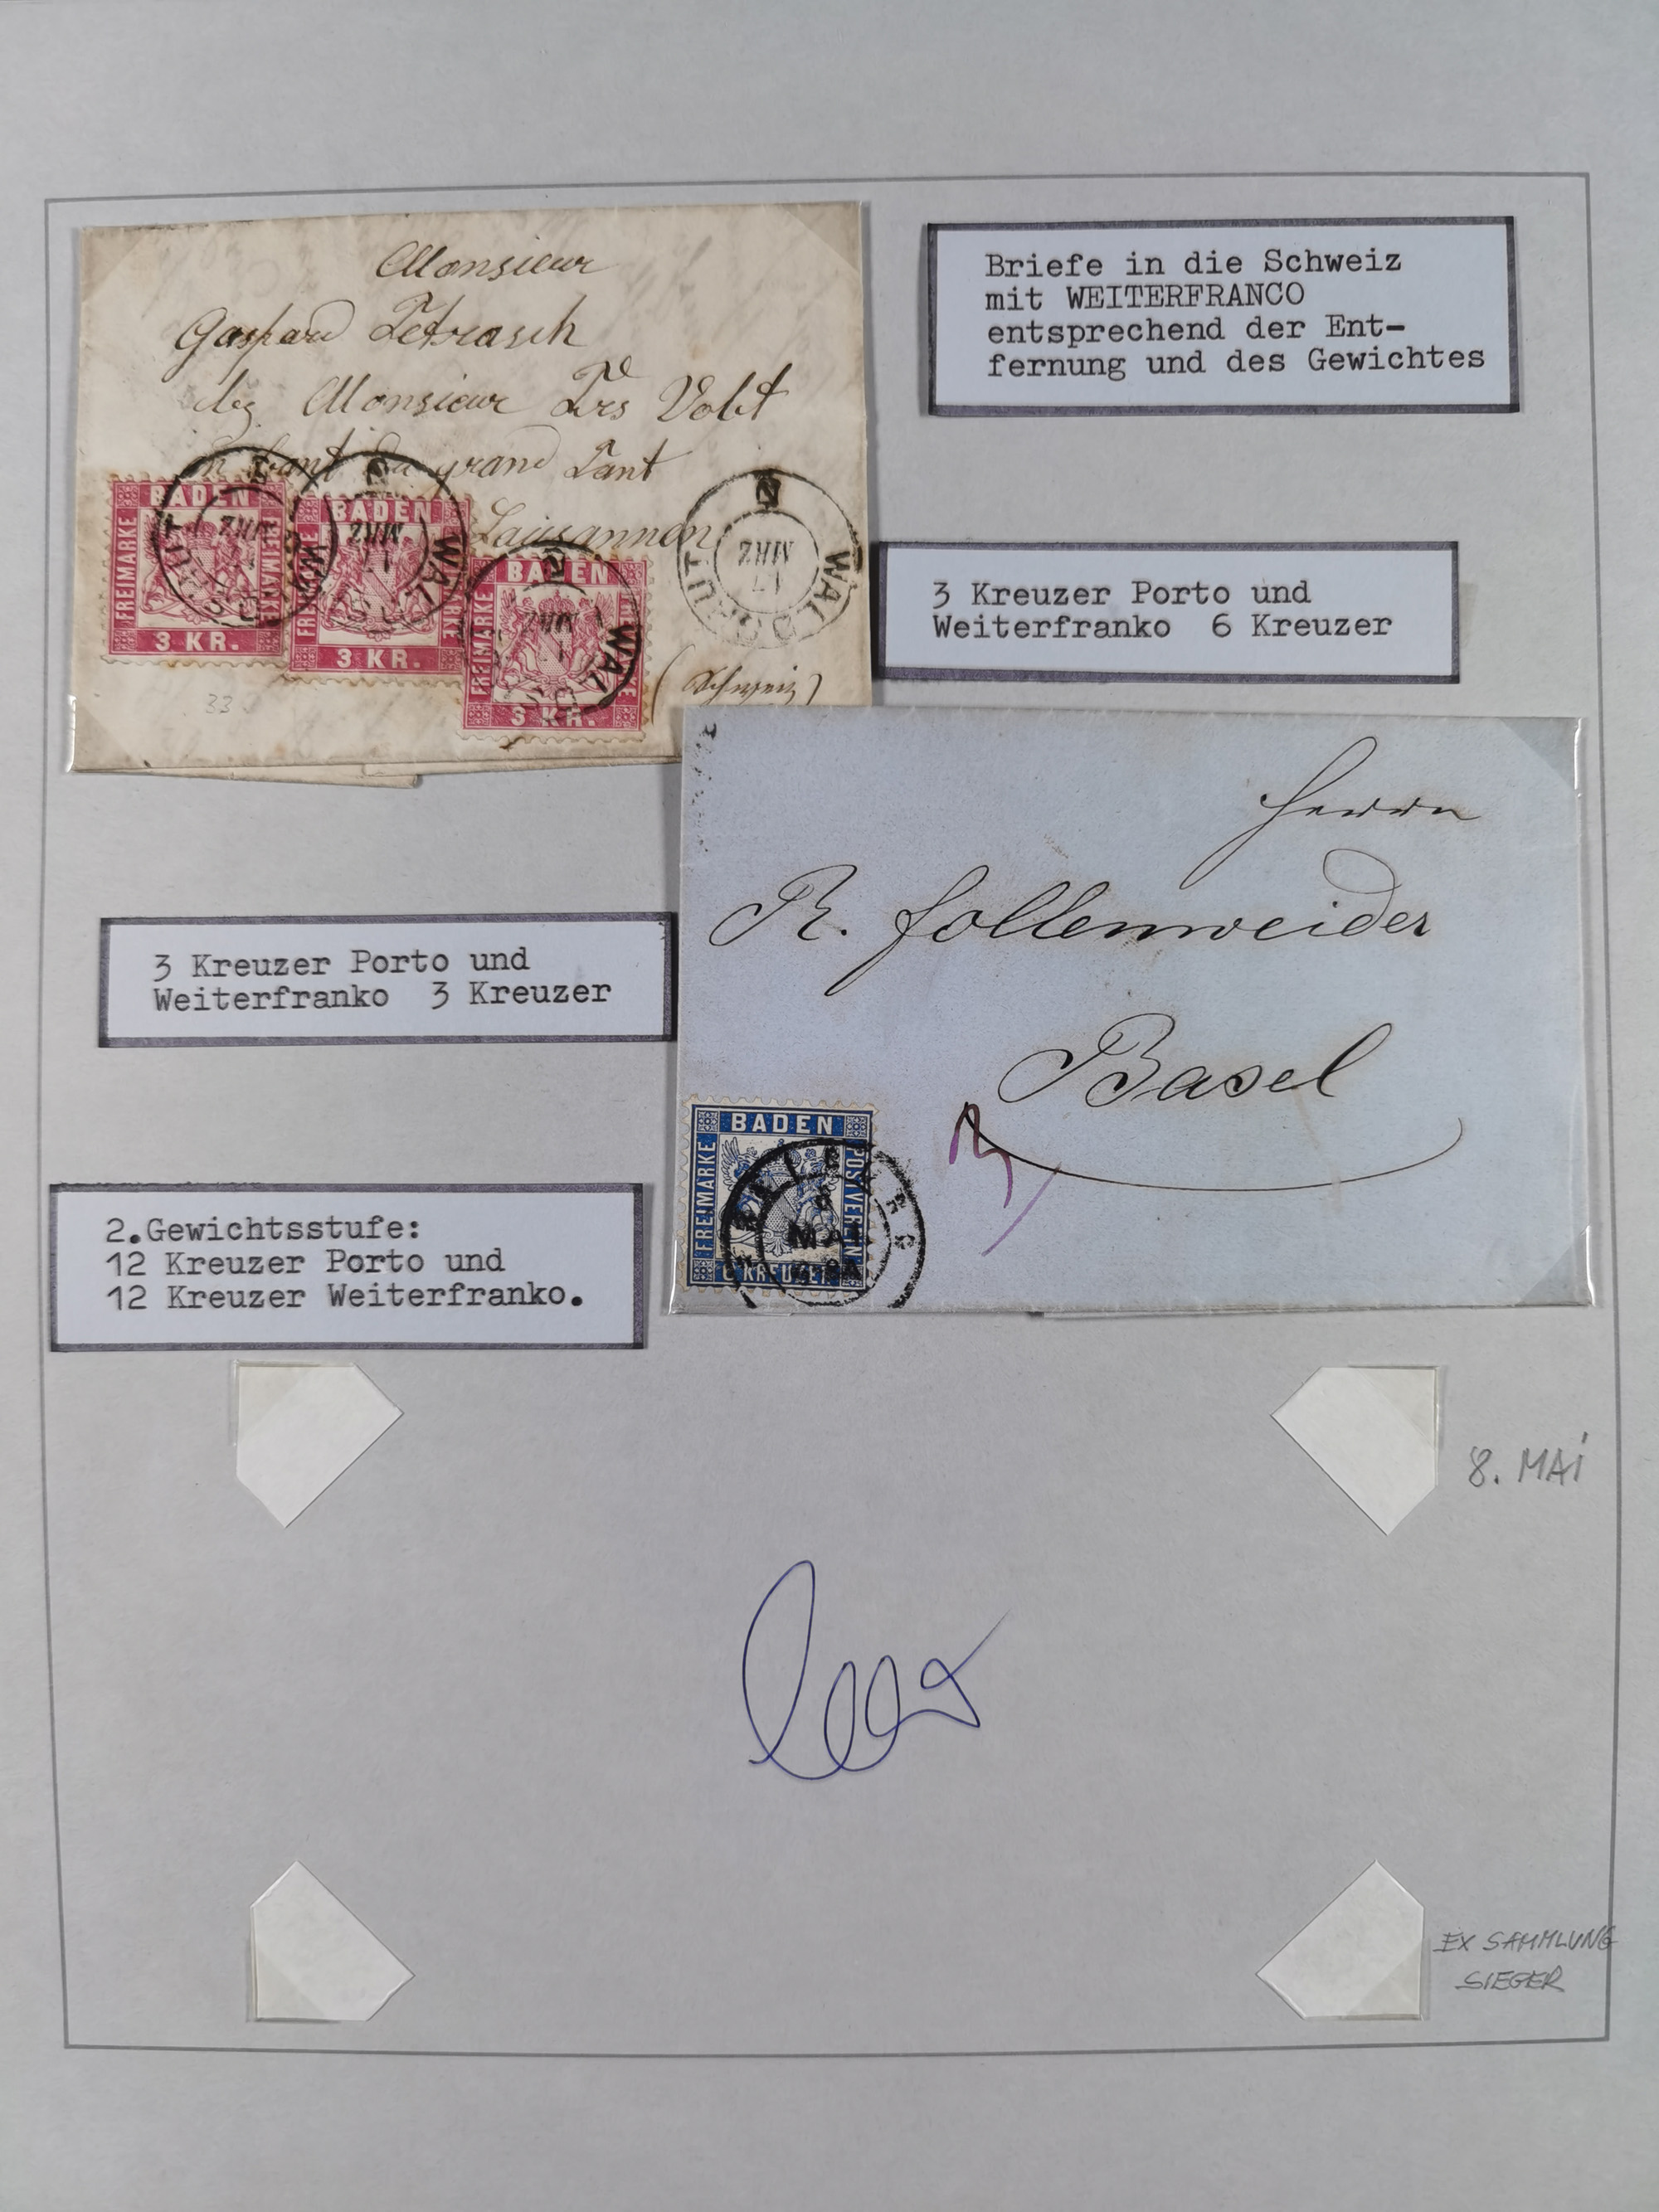 Monsieur
Gaspard
Monsieur
grand
Lausannen
(Schweiz)
BADEN
FREIMARKE
FREIMARKE
3 KR.
BADEN
3 KR.
BADEN
FREIMARKE
3 KR.
WALDSHUT
17
MRZ
N
33
Briefe in die Schweiz
mit WEITERFRANCO
entsprechend der Ent-
fernung und des Gewichtes
3 Kreuzer Porto und
Weiterfranko 6 Kreuzer
Herrn
R. Follenweider
Basel
3
BADEN
FREIMARKE
POSTVEREIN
6 KREUZER
MAI
3 Kreuzer Porto und
Weiterfranko 3 Kreuzer
2.Gewichtsstufe:
12 Kreuzer Porto und
12 Kreuzer Weiterfranko.
8. MAI
EX SAMMLUNG
SIEGER